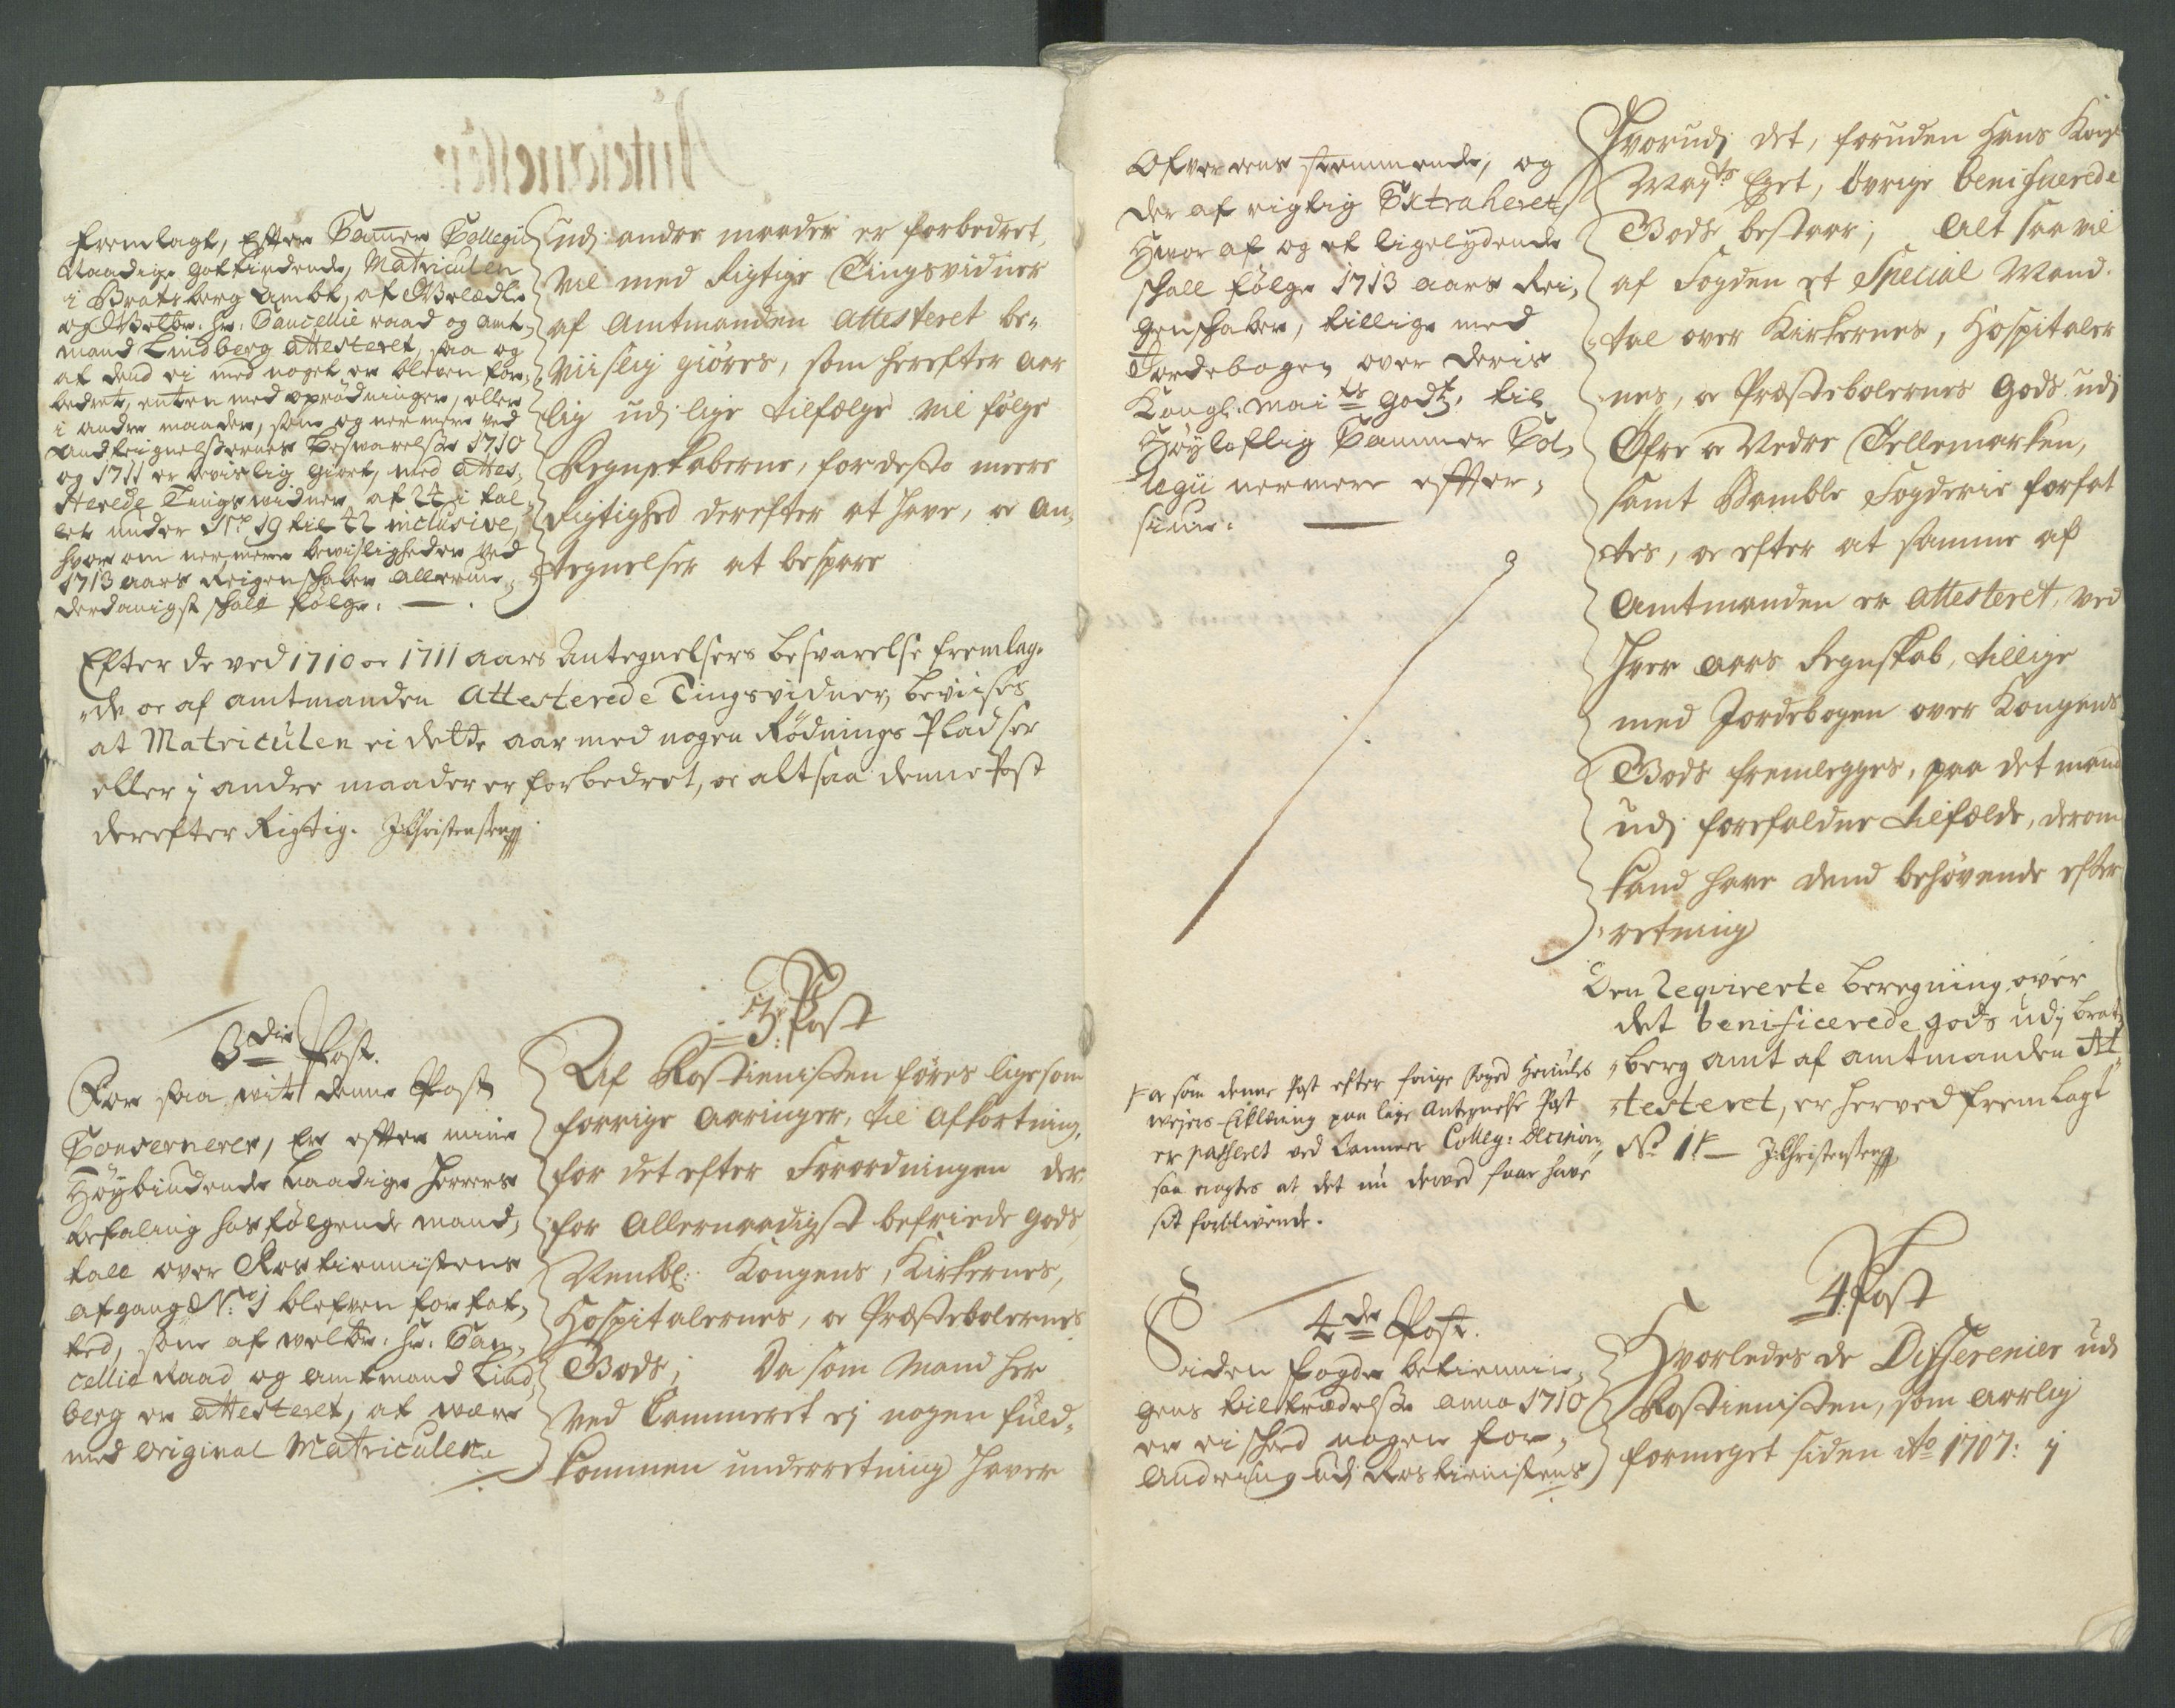 fremlagt, Efter Cammer Collegii
Naadige gotfindende, Matriculen
i Bratsberg Ambt, af Welædle
og Welb: Hr: Cancellie raad og Amt,
mand Lindberg attesteret, saa og
at dend ei med noget er bleven for,
bedret, enten med oprødninger, eller
i andre maader, som og nermere ved
Andteignelsernes besvarelse 1710
og 1711 er bevislig giort, med attes,
sterede Tingsvidner af 24 i tal,
let under No 19 til 42 inclusive,
hvor om nermere bevisligheder ved
1713 aars Reigenskaber allerun,
derdanigst skall følge.
udj andre maader er forbedret,
vil med Rigtige Tingsvidner
af Amtmanden attesteret be„
viislig giöres, som herefter aar
lig udj lige tilfælge vil følge
Regnskaberne, for desto meere
Rigtighed derefter at have, oc An„
tegnelser at bespare
Efter de ved 1710 oc 1711 aars Antegnelsers besvarelse fremlag„
„de oc af amtmanden Attesterede Tingsvidner, beviises
at Matriculen ei dette aar med nogen Rödnings Pladser
eller i andre maader er forbedret, oc altsaa denne Post
derefter Rigtig. J:Christensen
3die Post.
For saa vit denne Post
Concernerer, Er efter mine
Höybiudende Naadige Herrers
befaling hosfölgende mand,
tall over Rostienistens
afgang No: 1 blefven forfat,
ted, som af welb: Hr: Can,
cellie Raad og amtmand Lind,
berg er attesteret, at være
med original Matriculen
3: Post
Af Rostienisten föres ligesom
forrige Aaringer, til Afkortning,
for det efter Forordningen der,
for Allernaadigst befriede Gods
Nembl: Kongens, Kirkernes,
Hospitalernes, oc Præstebolernes
Gods; Da som mand her
ved Cammeret ej nogen fuld,
kommen underretning haver
Ofverens stemmende, og
der af rigtig Extraheret,
Hvor af og et ligelydende
skall fölge 1713 aars Rei,
genskaber, tillige med
Jordebogen over deris
Kongl: Maits godtz, til
Höyloflig Cammer Col,
legii nermere effter,
siun.
Hvorudj det, foruden Hans Kongl
Mayts Eget, övrige benificerede
Gods bestaar; Alt saa vil
af Fogden et Special Mand„
„tal over Kirkernes, Hospitaler
„nes, oc Præstebolernes Gods udj
Öfre oc Nedre Tellemarken,
samt Bamble Fogderie forfat
tes, oc efter at samme af
Amtmanden er attesteret, ved
hver Aars Regnskab, tillige
med Jordebogen over Kongens
Gods fremlegges, paa det mand
udj forefaldne tilfælde, derom
kand have dend behövende efter
„retning
Den Reqvirerte beregning over
det benificerede gods udj brat,
„berg amt af amtmanden At„
„testeret, er herved fremlagt
No 1 ⊬ J:Christensen
⊬ oc som denne Post efter forige foged Hercules
Weyers Erklæring paa lige Antegnelse Post
er passeret ved Cammer Colleg: Decision,
saa agtes at det nu derved faar have
sit forblivende.
4de Post.
Siden Fogde betiennin,
gens tiltrædelse anno 1710
er ei skeed nogen for,
andring udj Rostienistens
4. Post
Hvorledes de Differenzer udj
Rostienisten, som aarlig
formeget siden Ao 1707: i